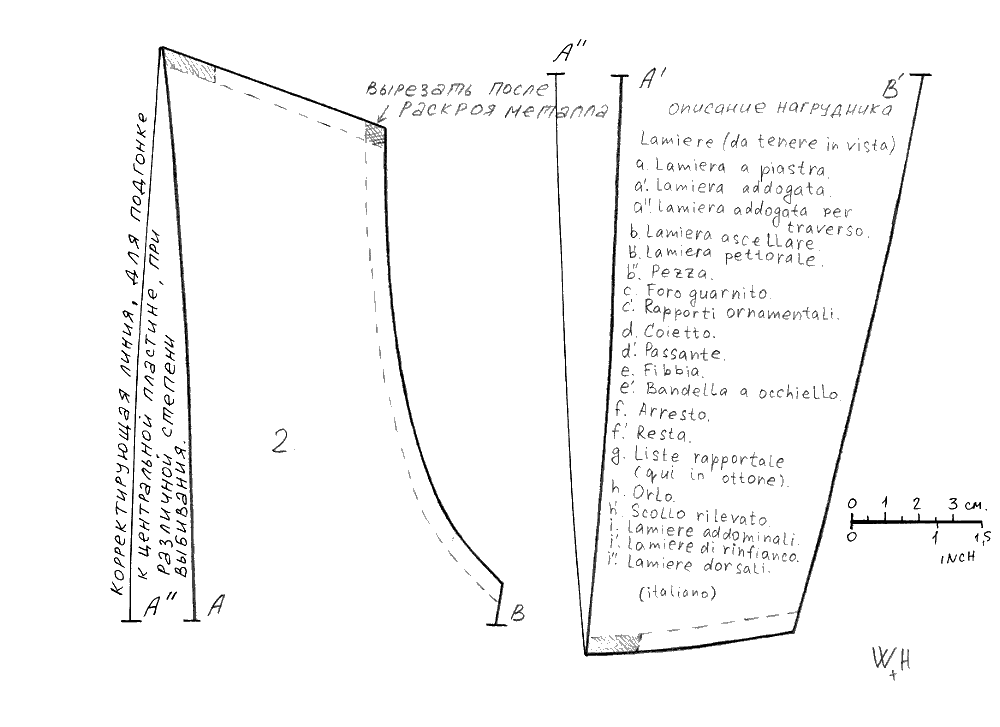 A"
A'
B'
Вырезать после
раскроя металла
описание нагрудника
Lamiere (da tenere in vista)
a. Lamiera a piastra.
a'. Lamiera addogata.
a". Lamiera addogata per
traverso.
b. Lamiera ascellare.
b'. Lamiera pettorale.
b". Pezza.
c. Foro guarnito.
c'. Rapporti ornamentali.
d. Coietto.
d'. Passante.
e. Fibbia.
e'. Bandella a occhiello.
f. Arresto.
f'. Resta.
g. Liste rapportate
(qui in ottone).
h. Orlo.
h'. Scollo rilevato.
i. Lamiere addominali.
i'. Lamiere di rinfianco.
i". Lamiere dorsali.
(italiano)
Корректирующая линия, для подгонке
к центральной пластине, при
различной степени
выбивания.
2.
A"
A
B
0 1 2 3 см.
0 1 1,5
INCH
W+H